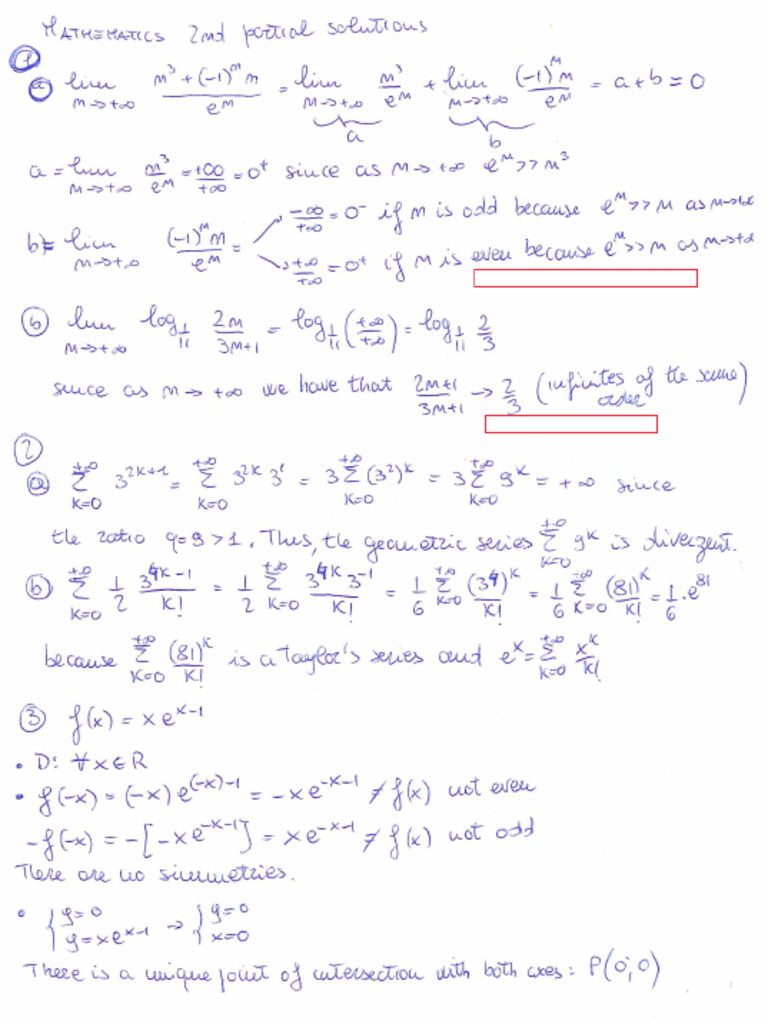 MATHEMATICS 2nd partial solutions
①
ⓐ lim_{m→+∞} (m³+(-1)^m m)/e^m = lim_{m→+∞} m³/e^m + lim_{m→+∞} (-1)^m m/e^m = a+b = 0
a b
a = lim_{m→+∞} m³/e^m = +∞/+∞ = 0⁺ since as m→+∞ e^m >> m³
b = lim_{m→+∞} (-1)^m m/e^m =
→ -∞/+∞ = 0⁻ if m is odd because e^m >> m as m→+∞
→ +∞/+∞ = 0⁺ if m is even because e^m >> m as m→+∞
ⓑ lim_{m→+∞} log_{1/11} 2m/(3m+1) = log_{1/11} (+∞/+∞) = log_{1/11} 2/3
since as m→+∞ we have that (2m+1)/(3m+1) → 2/3 (infinites of the same order)
②
ⓐ Σ_{k=0}^{+∞} 3^{2k+1} = Σ_{k=0}^{+∞} 3^{2k} 3¹ = 3 Σ_{k=0}^{+∞} (3²)^k = 3 Σ_{k=0}^{+∞} 9^k = +∞ since
the ratio q=9>1. Thus, the geometric series Σ_{k=0}^{+∞} 9^k is divergent.
ⓑ Σ_{k=0}^{+∞} 1/2 3^{4k-1}/k! = 1/2 Σ_{k=0}^{+∞} 3^{4k} 3^{-1}/k! = 1/6 Σ_{k=0}^{+∞} (3⁴)^k/k! = 1/6 Σ_{k=0}^{+∞} (81)^k/k! = 1/6 · e^{81}
because Σ_{k=0}^{+∞} (81)^k/k! is a Taylor's series and e^x = Σ_{k=0}^{+∞} x^k/k!
③ f(x) = x e^{x-1}
• D: ∀x∈R
• f(-x) = (-x) e^{(-x)-1} = -x e^{-x-1} ≠ f(x) not even
-f(-x) = -[-x e^{-x-1}] = x e^{-x-1} ≠ f(x) not odd
There are no simmetries.
• { y=0 → { y=0
{ y=x e^{x-1} { x=0
There is a unique point of intersection with both axes: P(0;0)